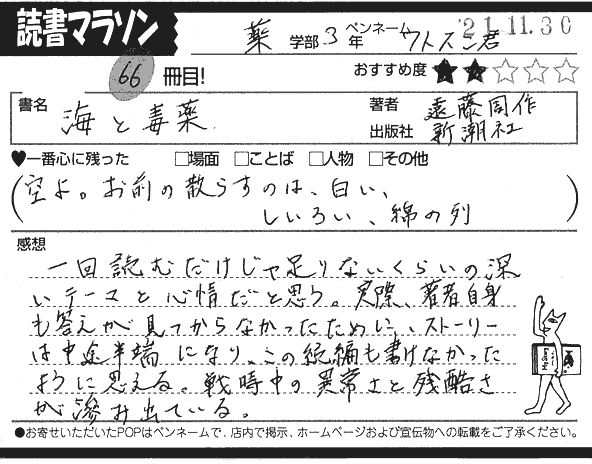 読書マラソン
'21.11.30
薬 学部 3 年 ペンネーム ワトスン君
66 冊目! おすすめ度 ★★☆☆☆
書名 海と毒薬 著者 遠藤周作
出版社 新潮社
♥一番心に残った □場面 □ことば □人物 □その他
(空よ。お前の散らすのは、白い、
しいろい、綿の列)
感想
一回読むだけじゃ足りないくらいの深
いテーマと心情だと思う。実際、著者自身
も答えが見つからなかったために、ストーリー
は中途半端になり、この続編も書けなかった
ように思える。戦時中の異常さと残酷さ
が滲み出ている。
●お寄せいただいたPOPはペンネームで、店内で掲示、ホームページおよび宣伝物への転載をご了承ください。